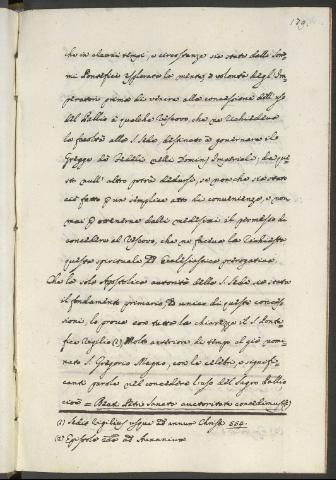 179.
che in alcuni tempi, e circostanze sia stata dalli Som-
mi Pontefici esplorata la mente, e volontà degl'Im-
peratori prima di venire alla concessione dell'uso
del Pallio a qualche Vescovo, che ne richiedeva
la facoltà alla S. Sede, destinato a governare il
Gregge de' Fedeli nelli Dominj Imperiali; da que-
sto null'altro potrà dedursi, se non che sia stato
ciò fatto per un semplice atto di convenienza, e non
mai per ottenere dalli medesimi il permesso di
concedere al Vescovo, che ne faceva la richiesta
questa spirituale, ed Ecclesiastica prerogativa
Che la sola Apostolica autorità della S. Sede sia stata
il fondamento primario, ed unico di queste conces-
sioni, lo prova con tutta la chiarezza il S. Ponte-
fice Vigilio (1), Molto anteriore di tempo al già nomi-
nato S. Gregorio Magno, con le celebri, e signifi-
canti parole nel concedere l'uso del Sagro Pallio
cioè = Beati Petri Sancta auctoritate concedimus (2)
(1) Sedit Vigilius usque ad annum Christi 555.
(2) Epistola ad Auxanium